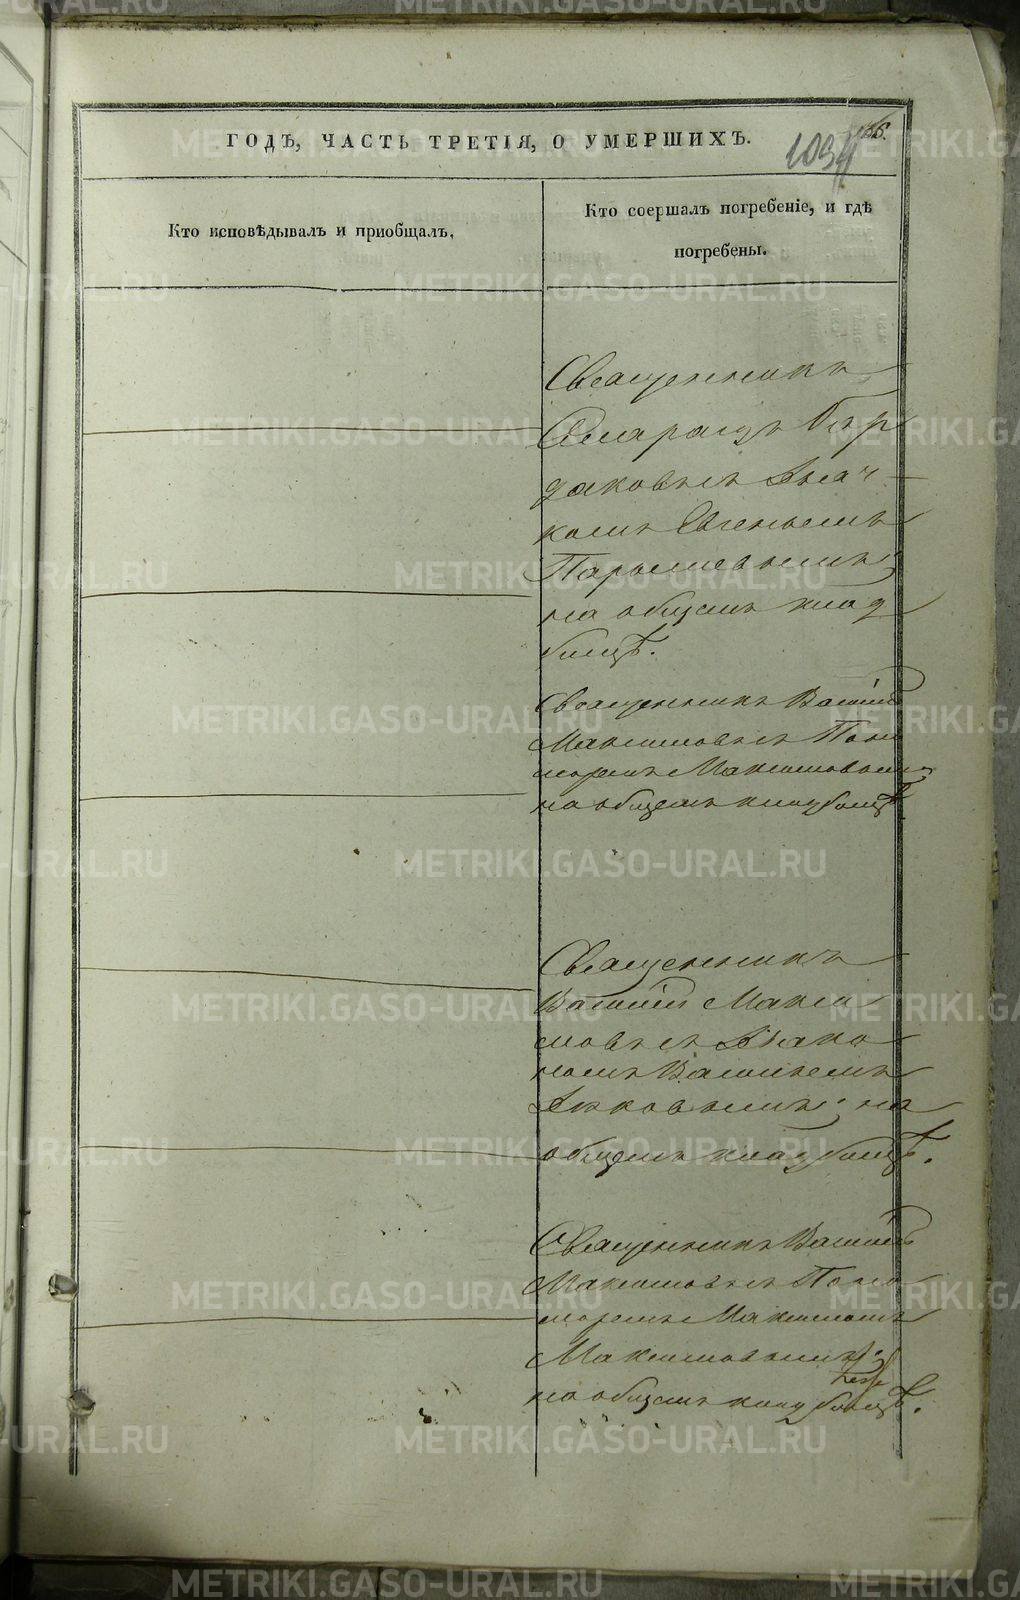 ГОДЪ, ЧАСТЬ ТРЕТІЯ, О УМЕРШИХЪ.
Кто исповѣдывалъ и приобщалъ.
Кто соершалъ погребеніе, и гдѣ
погребены.
Священникъ
Смарагдъ Бир
дяковъ съ Дьяч
комъ Евгеньемъ
Парышевымъ;
на общемъ клад
бищѣ.
Священникъ Василій
Максимовъ съ Поно
маремъ Максимовымъ;
на общемъ кладбищѣ.
Священникъ
Василій Макси
мовъ съ Діако
номъ Васильемъ
на
общемъ кладбищѣ.
Священникъ Василій
Максимовъ съ Поно
маремъ Максимомъ
Максимовымъ;
на общемъ кладбищѣ.
METRIKI.GASO-URAL.RU